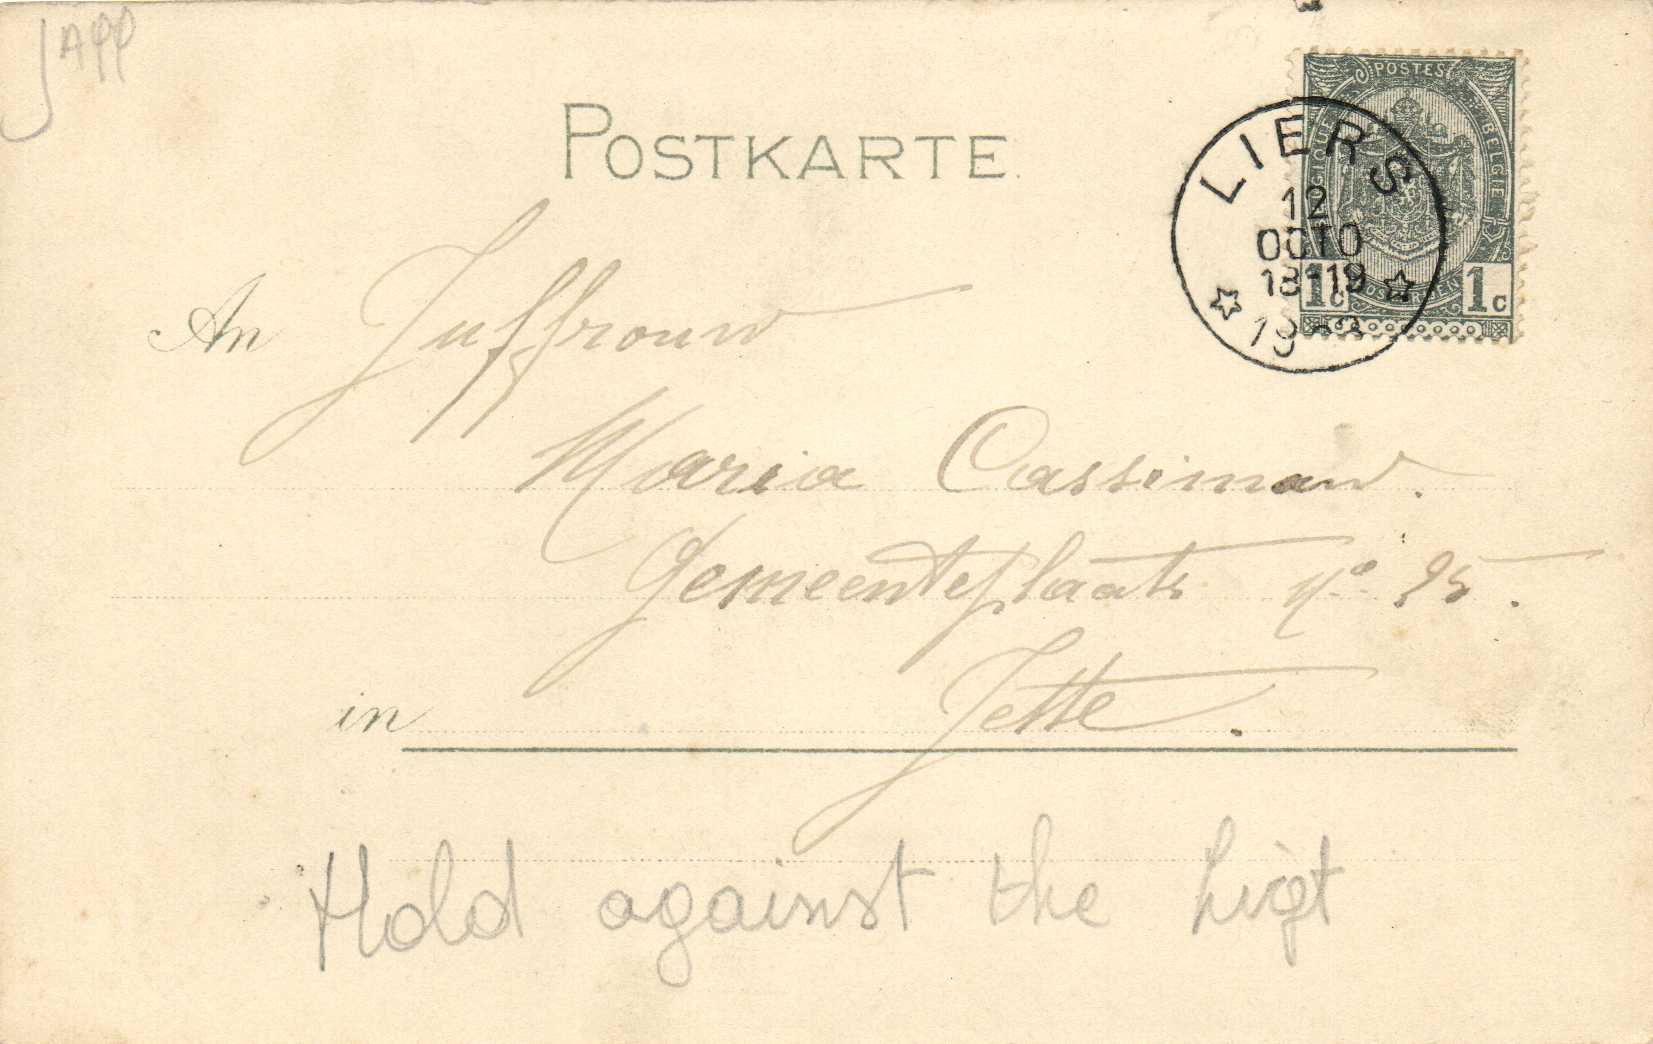 Japp
POSTKARTE
POSTES
BELGIQUE BELGIE
LIERS
12
OCTO
18-19
1c 1c
An Juffrouw
Maria Cassiman.
Gemeenteplaats No 25.
in Jette.
Hold against the Ligt